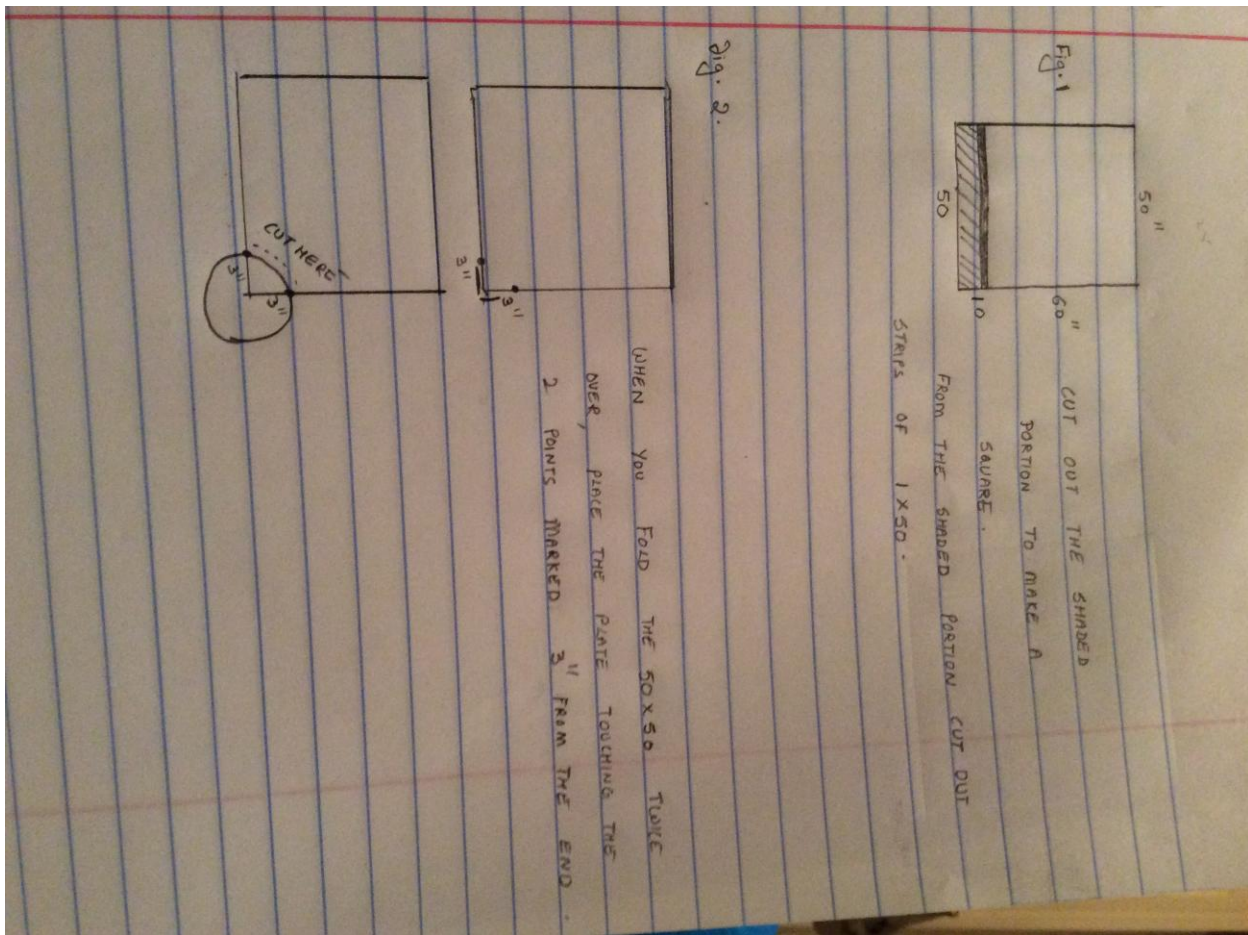 Fig. 1
50"
60"
10
50
CUT OUT THE SHADED
PORTION TO MAKE A
SQUARE.
FROM THE SHADED PORTION CUT OUT
STRIPS OF 1 X 50.
Fig. 2.
3"
3"
WHEN YOU FOLD THE 50 X 50 TWICE
OVER, PLACE THE PLATE TOUCHING THE
2 POINTS MARKED 3" FROM THE END.
CUT HERE
3"
3"